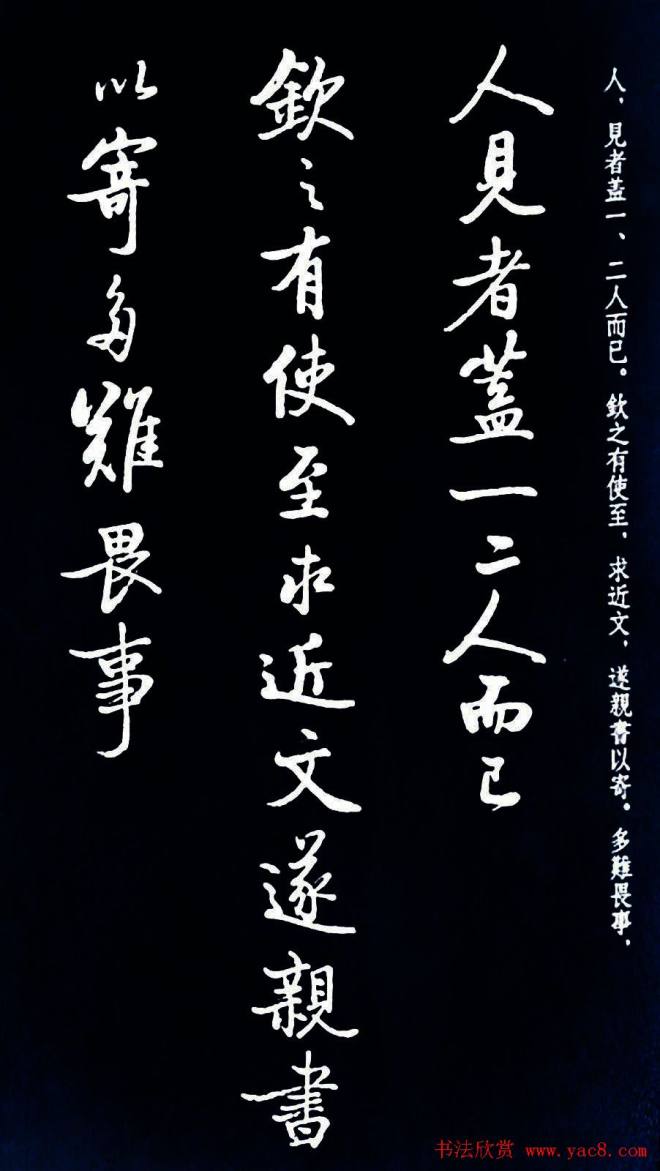 人，見者蓋一、二人而已。欽之有使至，求近文，遂親書以寄。多難畏事，
人見者蓋一二人而已
欽之有使至求近文遂親書
以寄多難畏事
书法欣赏 www.yac8.com